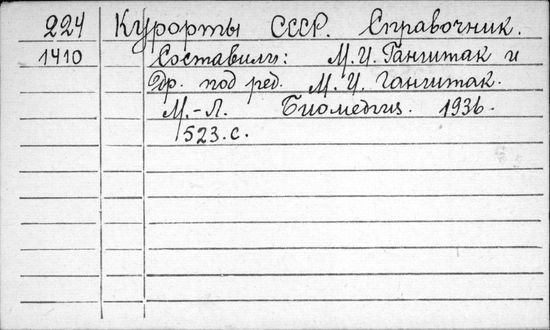 224 Курорты СССР. Справочник.
1410 Составили: М.И. Ганштак и
др. под ред. М.И. Ганштак.
М.-Л. Биомедгиз. 1936.
523.с.